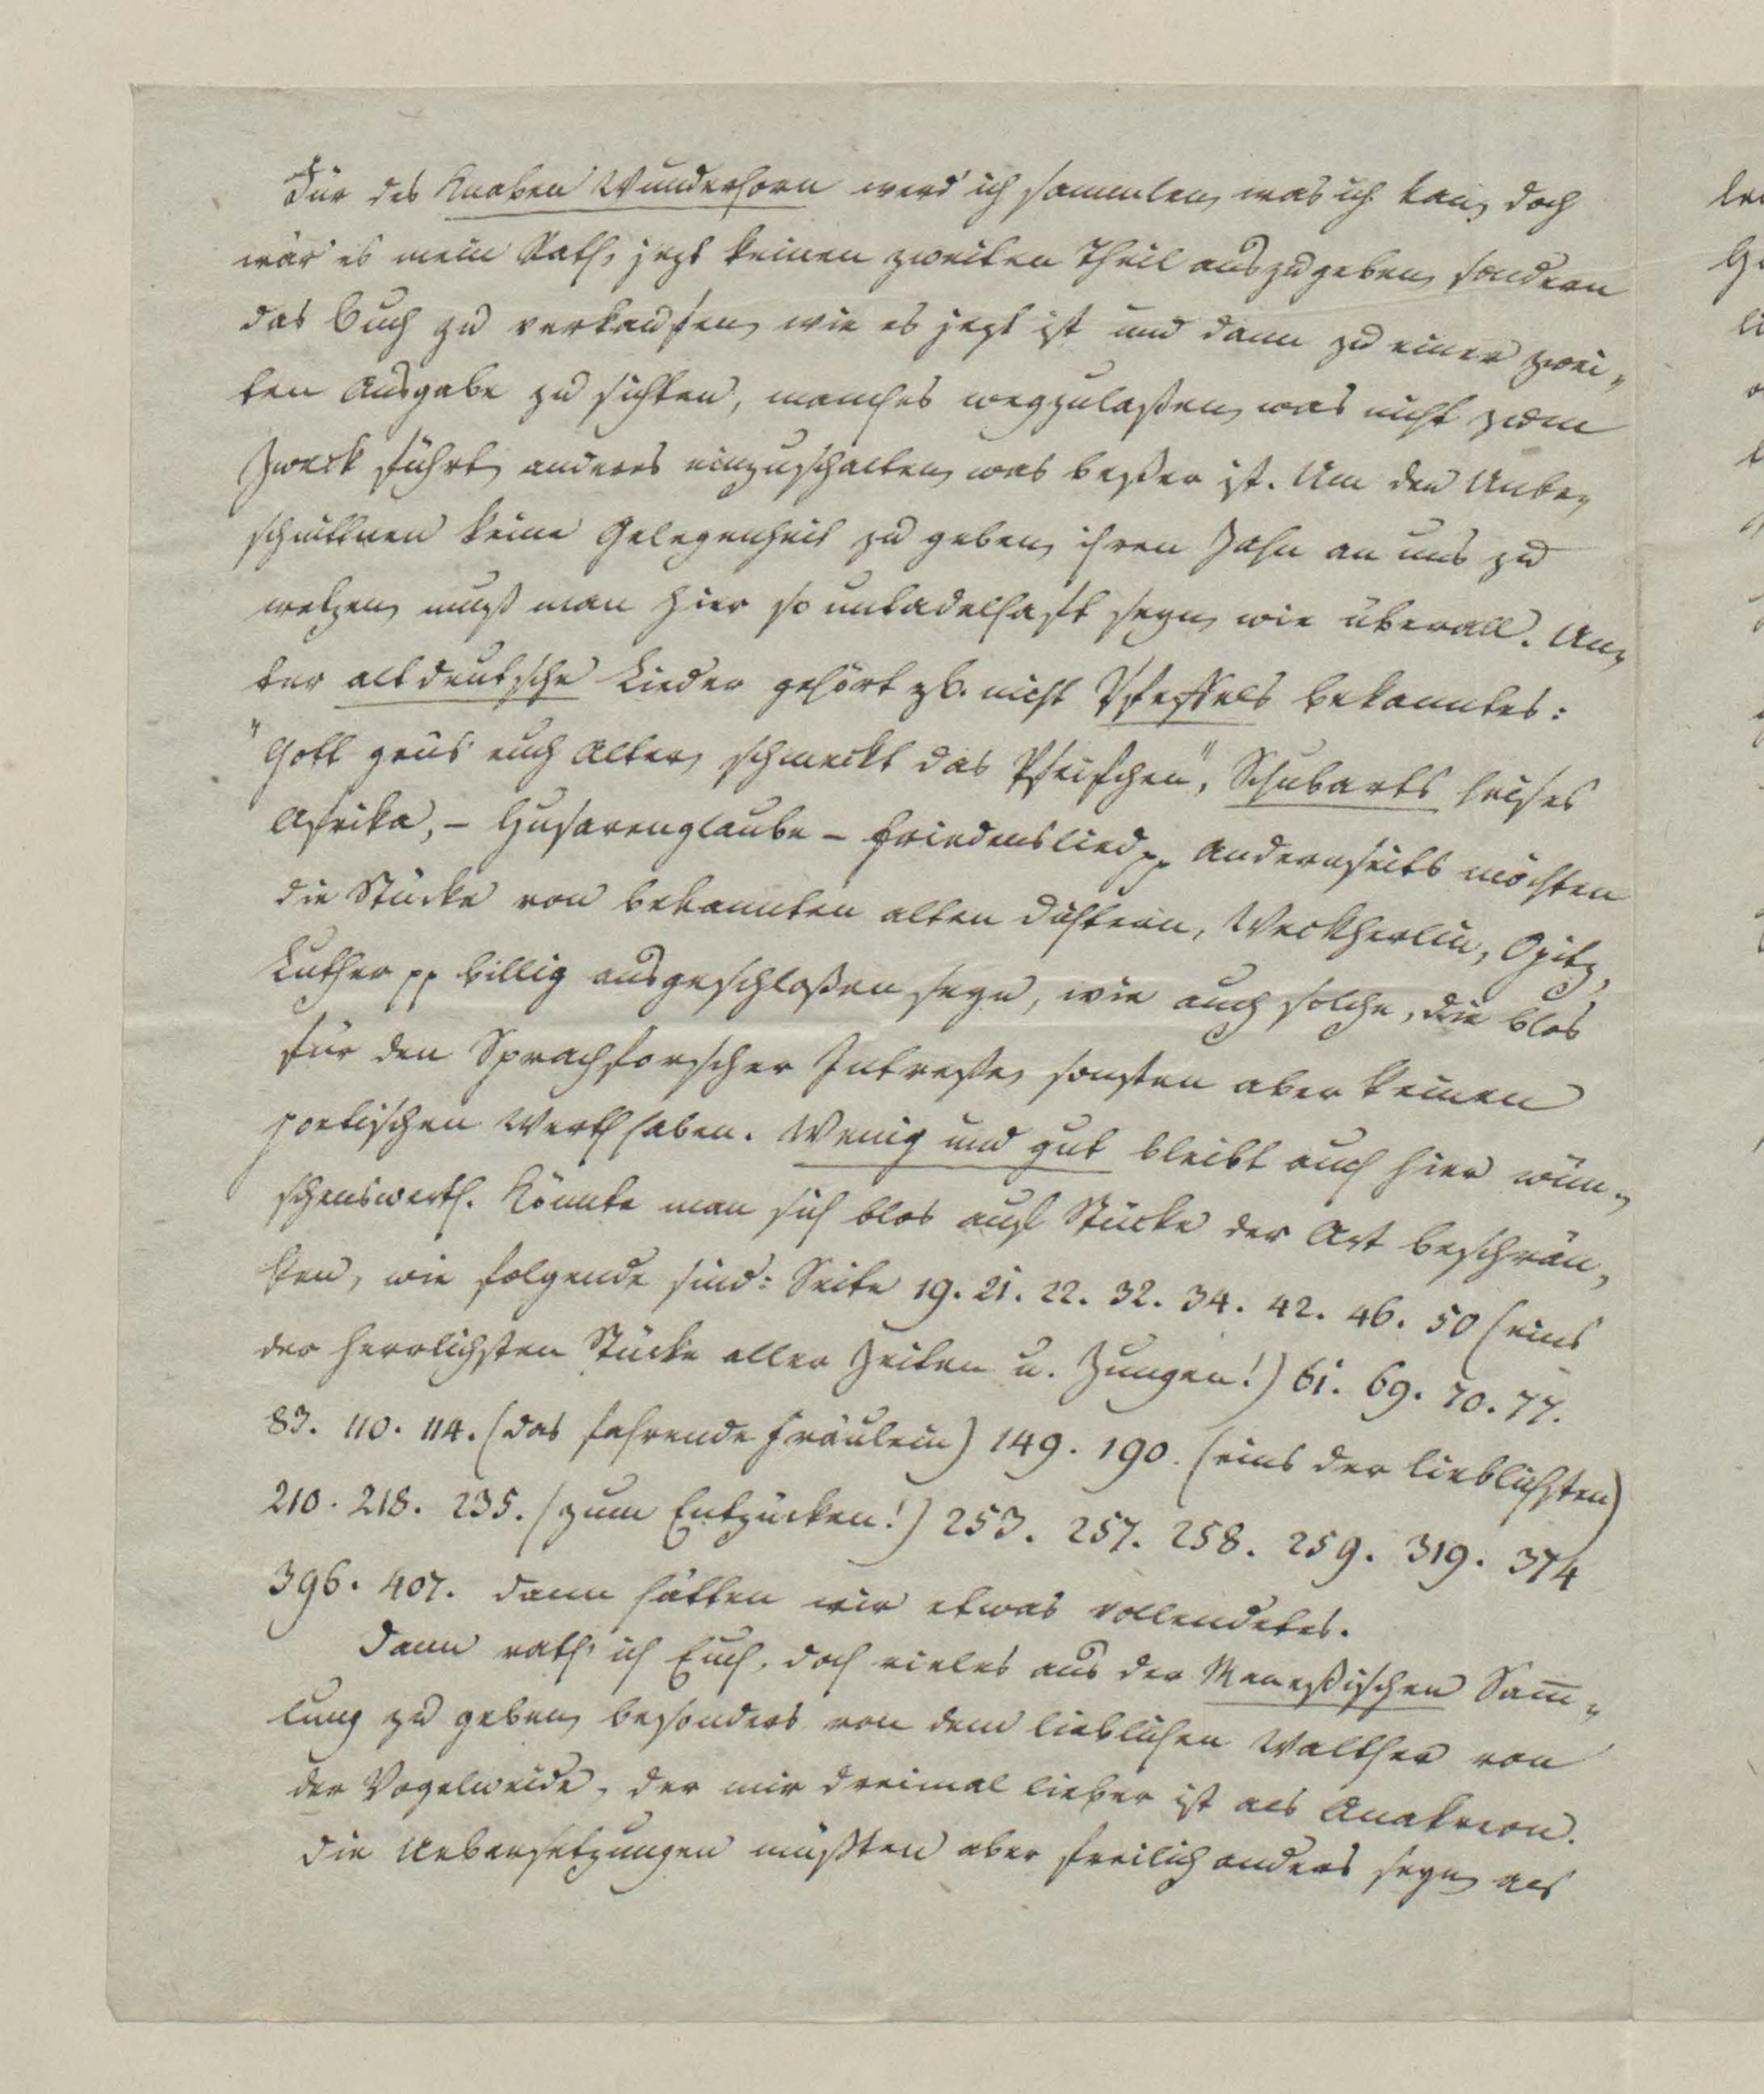 Für des Knaben Wunderhorn werd' ich sammlen, was ich kan, doch
wär' es mein Rath, jezt keinen zweiten Theil auszugeben, sondern
das Buch zu verkaufen, wie es jezt ist und dann zu einer zwei-
ten Ausgabe zu sichten, manches wegzulaßen, was nicht zum
Zweck führt, anderes einzuschalten, was beßer ist. Um den Unbe-
schnittnen keine Gelegenheit zu geben, ihren Zahn an uns zu
wetzen, muß man hier so untadelhaft seyn, wie überall. Un-
ter altdeutsche Lieder gehört zb. nicht Pfeffels bekanntes:
"Gott grüs' euch Alter, schmeckt das Pfeifchen", Schubarts heises
Afrika, – Husarenglaube – Friedenslied pp Andernseits möchten
die Stücke von bekannten alten Dichtern, Weckherlin, Opitz,
Luther pp billig ausgeschloßen seyn, wie auch solche, die blos
für den Sprachforscher Intreße, sonsten aber keinen
poetischen Werth haben. Wenig und gut bleibt auch hier wün-
schenswerth. Könnte man sich blos auf Stücke der Art beschrän-
ken, wie folgende sind: Seite 19. 21. 22. 32. 34. 42. 46. 50 (eins
der herrlichsten Stücke aller Zeiten u. Zungen!) 61. 69. 70. 77.
83. 110. 114. (das fahrende Fräulein) 149. 190. (eins der lieblichsten)
210. 218. 235. (zum Entzücken!) 253. 257. 258. 259. 319. 374
396. 407. dann hätten wir etwas vollendetes.
Dann rath' ich Euch, doch vieles aus der Maneßischen Sam̅-
lung zu geben, besonders von dem lieblichen Walther von
der Vogelweide, der mir dreimal lieber ist als Anakreon.
Die Uebersetzungen müßten aber freilich anders seyn, als